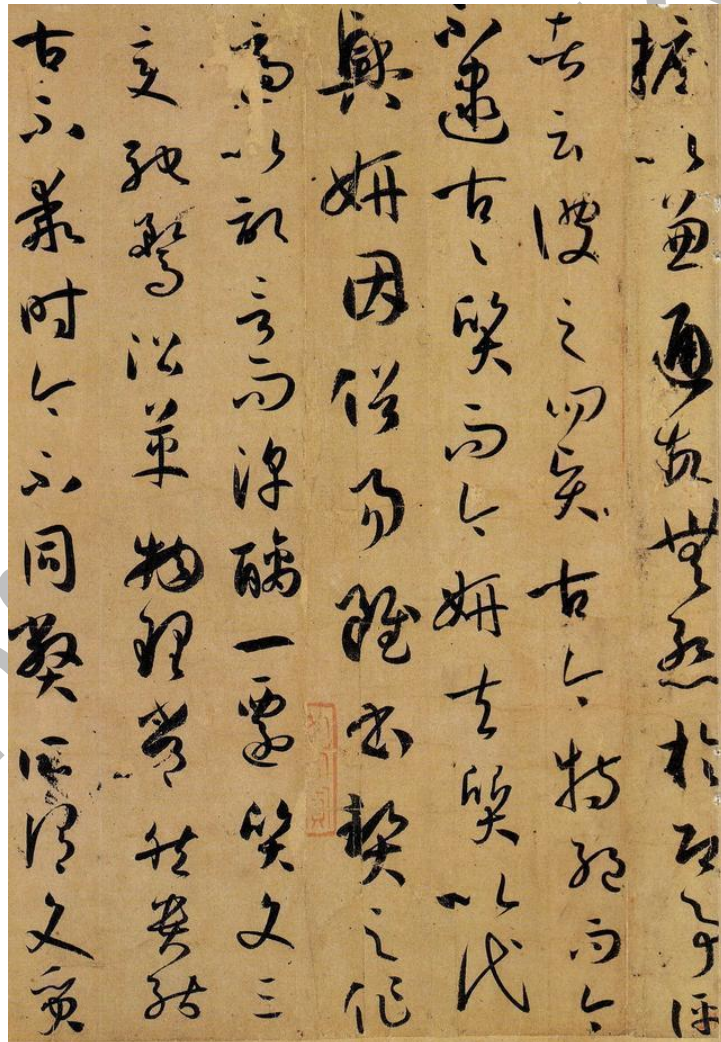 摭以兼通故無慚於即事評
者云彼之四賢古今特絕而今
不逮古々質而今妍夫質以代
興妍因俗易雖書契之作
適以記言而淳醨一遷質文三
變馳騖沿革物理常然貴能
古不乖時今不同弊所謂文質